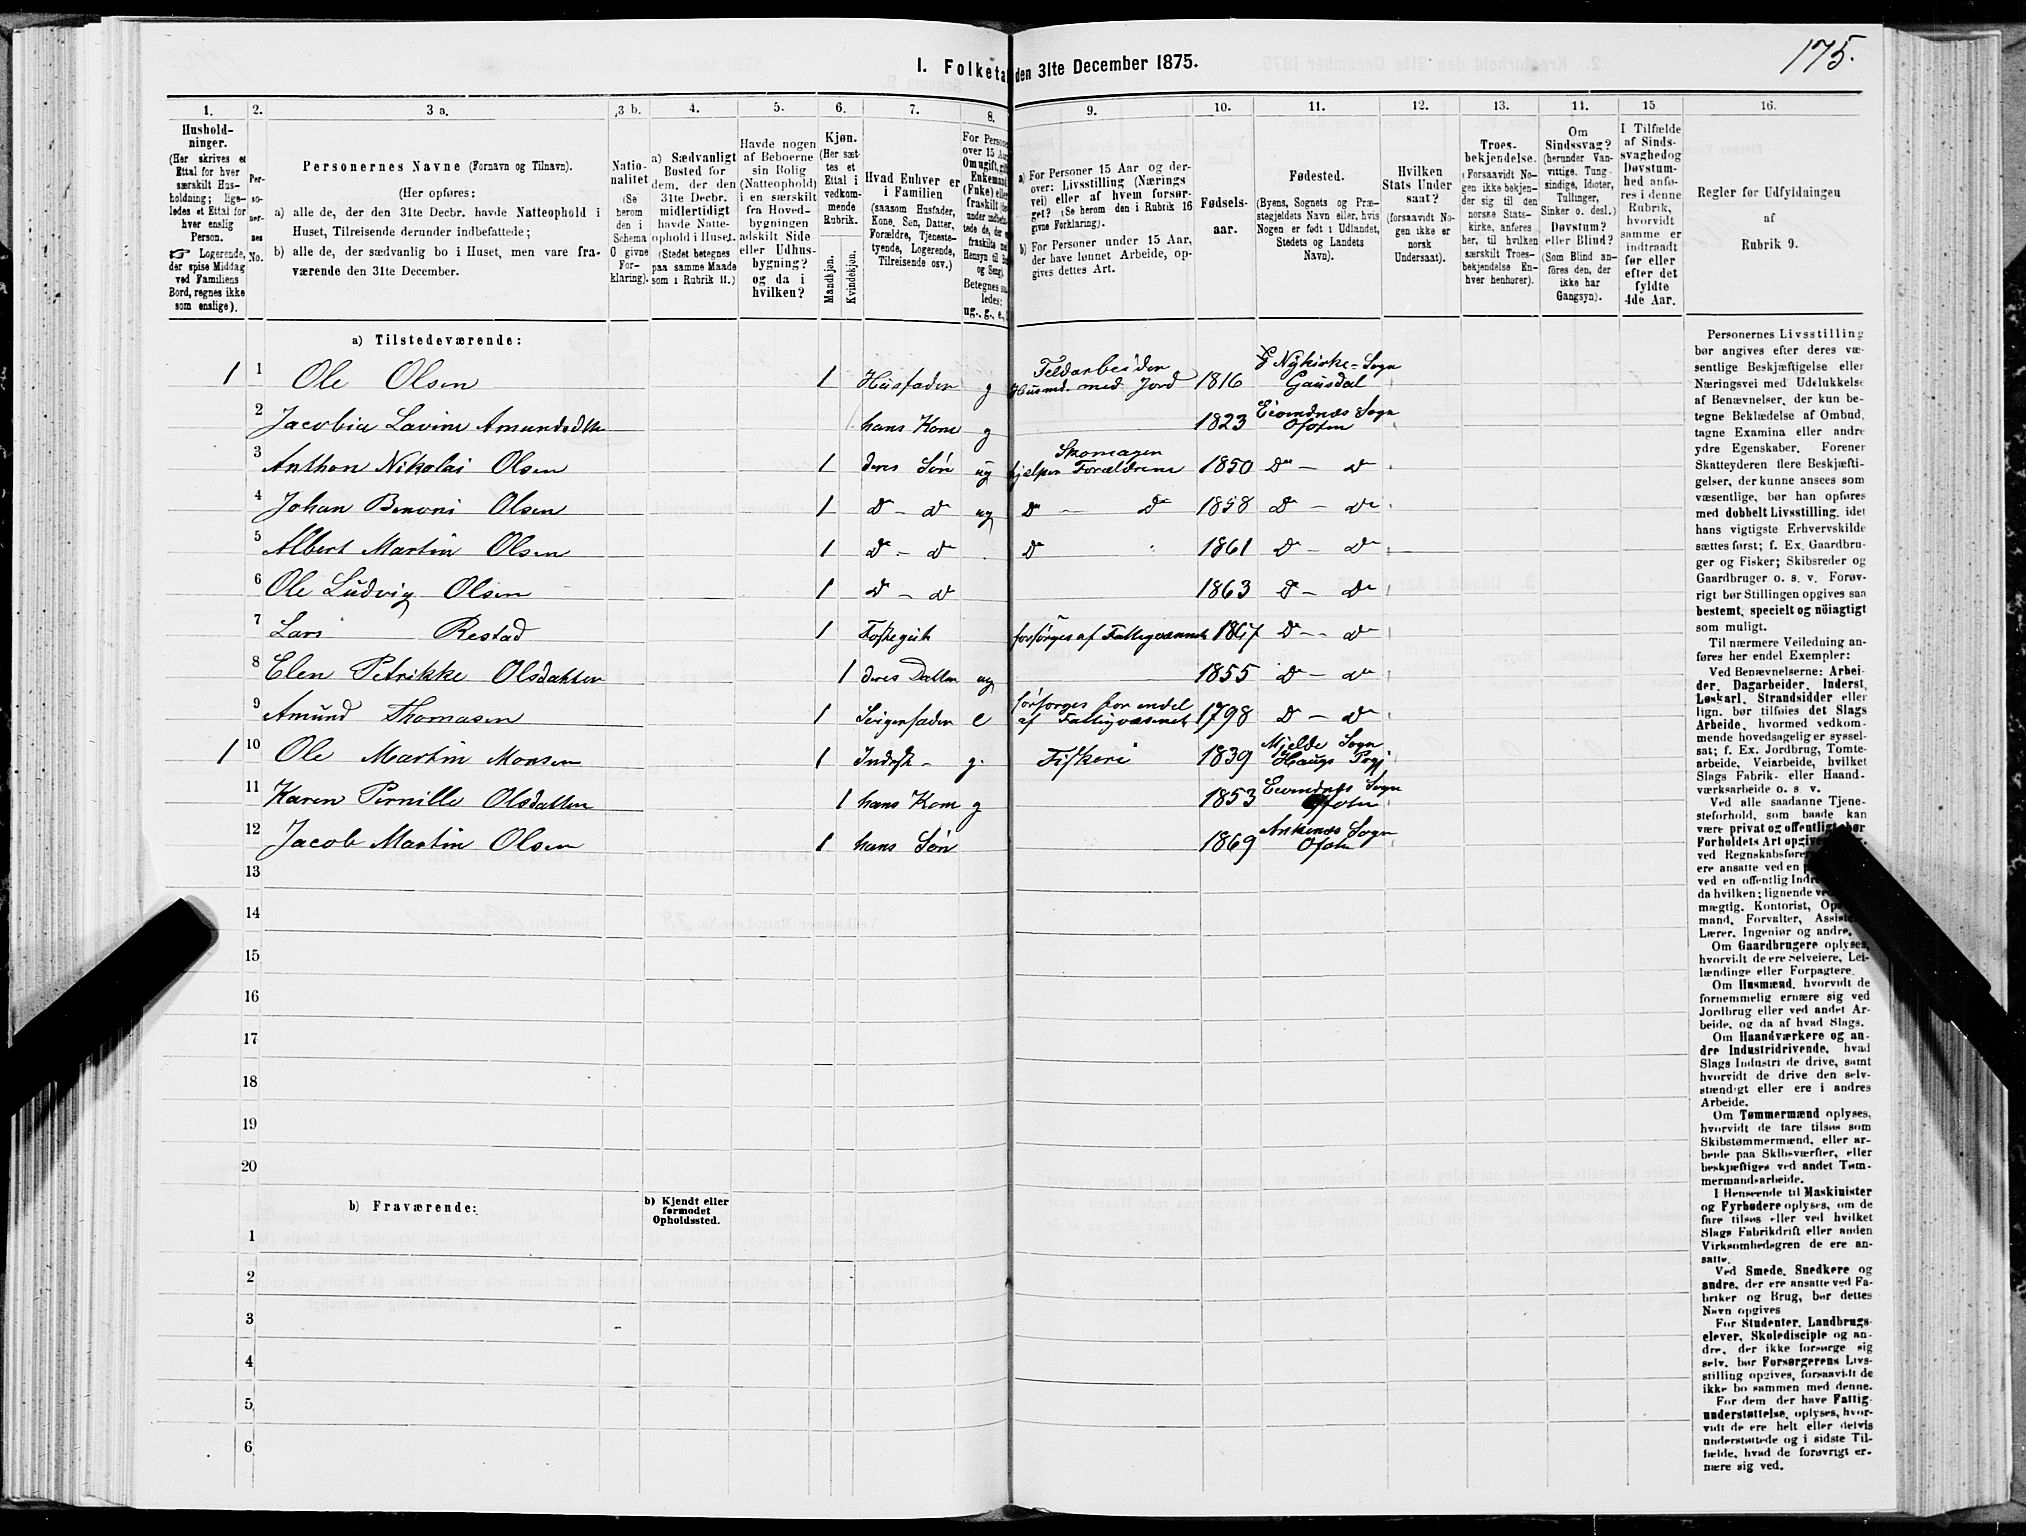 175.
I. Folketa den 31te December 1875.
1. 2. 3 a. 3 b. 4. 5. 6. 7. 8. 9. 10. 11. 12. 13. 14. 15. 16.
Hushold-
ninger.
(Her skrives et
Ettal for hver
særskilt Hus-
holdning; lige-
ledes et Ettal for
hver enslig
Person.
☞ Logerende,
der spise Middag
ved Familiens
Bord, regnes ikke
som enslige).
Per-
so-
ner-
nes
No.
Personernes Navne (Fornavn og Tilnavn).
(Her opføres:
a) alle de, der den 31te Decbr. havde Natteophold i
Huset, Tilreisende derunder indbefattede;
b) alle de, der sædvanlig bo i Huset, men vare fra-
værende den 31te December.
Natio-
nalitet
(Se
herom
den i
Schema
O givne
For-
klaring).
a) Sædvanligt
Bosted for
dem, der den
31te Decbr.
midlertidigt
havde Natte-
ophold i Huset.
(Stedet betegnes
paa samme Maade
som i Rubrik 11.)
Havde nogen
af Beboerne
sin Bolig
(Natteophold)
i en særskilt
fra Hoved-
bygningen
adskilt Side
eller Udhus-
bygning?
og da i
hvilken?
Kjøn.
(Her sæt-
tes et
Ettal i
vedkom-
mende
Rubrik.
Mandkjøn.
Kvindekjøn.
Hvad Enhver er
i Familien
(saasom Husfader,
Kone, Søn, Datter,
Forældre, Tjeneste-
tyende, Logerende,
Tilreisende osv.)
For Persone
over 15 Aa
Omugift, gif
Enkemand
(Enke) elle
fraskilt (de
under indbefat-
tede de, der e
fraskilte me
Hensyn til Bo
og Seng).
Betegnes saa
ledes:
ug., g., e.,
a) For Personer 15 Aar og der-
over: Livsstilling (Nærings
vei) eller af hvem forsør-
get? (Se herom den i Rubrik 16
givne Forklaring).
b) For Personer under 15 Aar,
der have lønnet Arbeide, op-
gives dettes Art.
Fødsels-
aar.
Fødested.
(Byens, Sognets og Præ-
stegjeldets Navn eller, hvis
Nogen er født i Udlandet,
Stedets og Landets
Navn).
Hvilken
Stats Under
saat?
(forsaavidt No-
gen ikke er
norsk
Undersaat).
Troes-
bekjendelse.
(Forsaavidt No-
gen ikke bekjen-
der sig til den
norske Stats-
kirke, anføres
her, til hvilken
særskilt Troes-
bekjendelse En-
hver henhører).
Om
Sindssvag?
(herunder Van-
vittige, Tung-
sindige, Idioter,
Tullinger,
Sinker o. desl.)
Døvstum?
eller Blind?
(Som Blind an-
føres den, der
ikke har
Gangsyn).
I Tilfælde
af Sinds-
svaghedog
Døvstum-
hed anfø-
res i denne
Rubrik,
hvorvidt
samme er
indtraadt
før eller
efter det
fyldte
4de Aar.
Regler for Udfyldningen
af
Rubrik 9.
a) Tilstedeværende:
1 1 Ole Olsen 1 Husfader g Feldarbeider Husmd. med Jord 1816 Nykirke-Sogn Gausdal
2 Jacobia Lavine Amundsdtter hans Kone g 1823 Evendnæs Sogn Ofoten
3 Anthon Nikolai Olsen 1 deres Søn ug Skomager hjælper Forældrene 1850 Do — do
4 Johan Benoni Olsen 1 do — do ug do — do 1858 do — do
5 Albert Martin Olsen 1 do — do do 1861 do — do
6 Ole Ludvig Olsen 1 do — do 1863 do — do
7 Lars Restad 1 forsørges af Fattigvæsenet 1867 do — do
8 Elen Petrikke Olsdatter 1 deres Datter ug 1855 do — do
9 Amund Thomasen 1 e forsørges for endel af Fattigvæsenet 1798 do — do
1 10 Ole Martin Monsen 1 Inderst — g. Fiskeri 1839 Mjelde Sogn Haugs Prgj
11 Karen Pernille Olsdatter 1 hans Kone g 1853 Evendnæs Sogn Ofoten
12 Jacob Martin Olsen 1 hans Søn 1869 Ankenæs Sogn Ofoten
13
14
15
16
17
18
19
20
b) Fraværende:
b) Kjendt eller
formodet
Opholdssted.
1
2
3
4
5
6
Personernes Livsstilling
bør angives efter deres væ-
sentlige Beskjæftigelse eller
Næringsvei med Udelukkelse
af Benævnelser, der kun be-
tegne Beklædelse af Ombud,
tagne Examina eller andre
ydre Egenskaber. Forener
Skatteyderen flere Beskjæfti-
gelser, der kunne ansees som
væsentlige, bør han opføres
med dobbelt Livsstilling, idet
hans vigtigste Erhvervskilde
sættes først; f. Ex. Gaardbru-
ger og Fisker; Skibsreder og
Gaardbruger o. s. v. Forøv-
rigt bør Stillingen opgives saa
bestemt, specielt og nöiagtigt
som muligt.
Til nærmere Veiledning an-
føres her endel Exempler:
Ved Benævnelserne: Arbei-
der, Dagarbeider, Inderst,
Løskarl, Strandsidder eller
lign. bør tilføies det Slags
Arbeide, hvormed vedkom-
mende hovedsagelig er syssel-
sat; f. Ex. Jordbrug, Tomte-
arbeide, Veiarbeide, hvilket
Slags Fabrik- eller Haand-
værksarbeide o. s. v.
Ved alle saadanne Tjene-
steforhold, som baade kan
være privat og offentligt, bør
Forholdets Art opgive
ved Regnskabsføre
ere ansatte ved en
ved en offentlig Indre
da hvilken; lignende ve
mægtig, Kontorist, Op
mand, Forvalter, Assist
Lærer, Ingeniør og andre.
Om Gaardbrugere oplyses,
hvorvidt de ere Selveiere, Lei-
lændinge eller Forpagtere.
Om Husmænd, hvorvidt de
fornemmelig ernære sig ved
Jordbrug eller ved andet Ar-
beide, og da af hvad Slags.
Om Haandværkere og an-
dre Industridrivende, hvad
Slags Industri de drive, samt
hvorvidt de drive den selv-
stændigt eller ere i andres
Arbeide.
Om Tømmermænd oplyses,
hvorvidt de fare tilsøs som
Skibstømmermænd, eller ar-
beide paa Skibsværfter, eller
beskjæftiges ved andet Tøm-
mermandsarbeide.
I Henseende til Maskinister
og Fyrbødere oplyses, om de
fare tilsøs eller ved hvilket
Slags Fabrikdrift eller anden
Virksomhedsgren de ere an-
satte.
Ved Smede, Snedkere og
andre, der ere ansatte ved Fa-
briker og Brug, bør dettes
Navn opgives
For Studenter, Landbrugs-
elever, Skoledisciple og an-
dre, der ikke forsørge sig
selv, bør Forsørgerens Livs-
stilling opgives, forsaavidt de
ikke bo sammen med denne.
For dem der have Fattig-
understøttelse, oplyses, hvor-
vidt de ere helt eller delvis
understøttede og i sidste Til-
fælde, hvad de forøvrigt er-
nære sig ved.